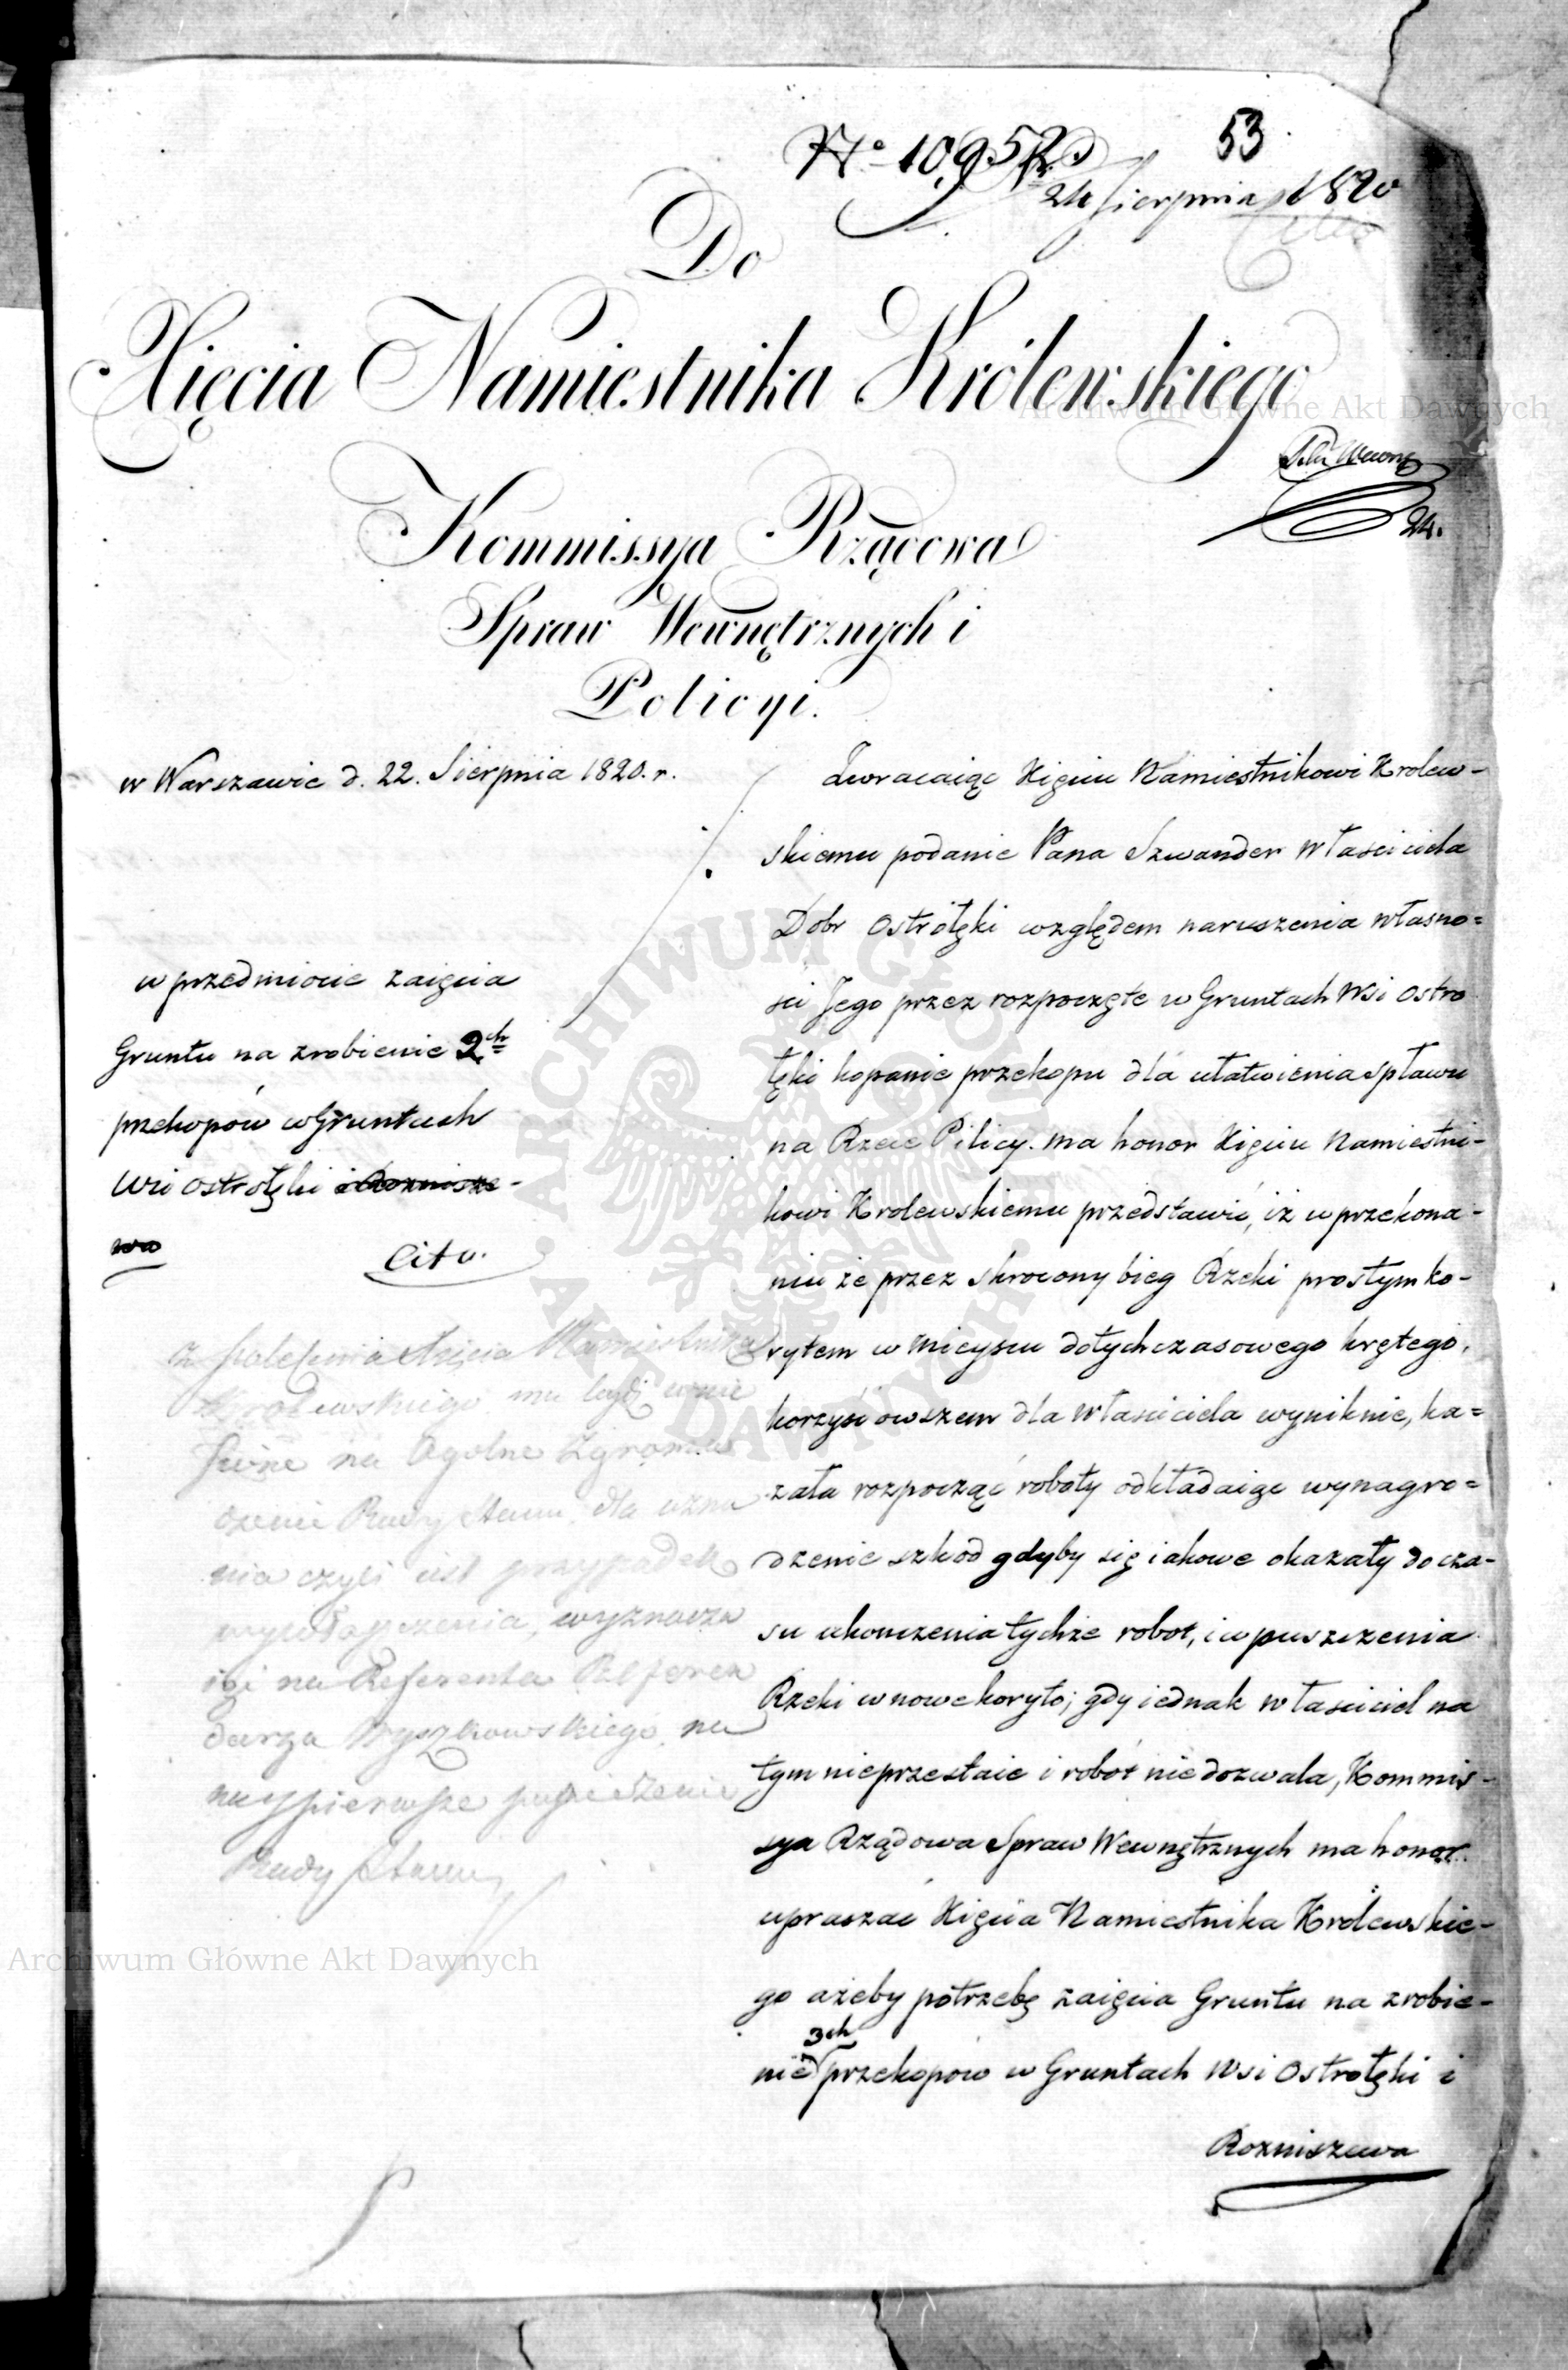 53
No 10,952
24 Sierpnia 1820
Do
Xięcia Namiestnika Królewskiego
Kommissya Rządowa
Spraw Wewnętrznych i
Policyi.
24.
w Warszawie d. 22. Sierpnia 1820. r.
w przedmiocie zaięcia
Gruntu na zrobienie 2ch
przekopów w Gruntach
Wsi Ostrołęki i Rozniszewa
Cito.
Z polecenia Xięcia Namiestnika
Królewskiego ma bydź wnie
sione na Ogolne Zgroma
dzenie Rady Stanu, dla uzna
nia czyli iest przypadek
wywłaszczenia, wyznacza
iąc na Referenta Referen
darza Wyszkowskiego, na
naypierwsze posiedzenie
Rady Stanu
Zwracaiąc Xięciu Namiestnikowi Krolew-
skiemu podanie Pana Szwander Własciciela
Dobr Ostrołęki względem naruszenia własno=
ści Jego przez rozpoczęte w Gruntach Wsi Ostro
łęki kopanie przekopu dla ułatwienia spławu
na Rzece Pilicy. ma honor Xięciu Namiestni-
kowi Krolewskiemu przedstawić, iż w przekona-
niu że przez skrocony bieg Rzeki prostym ko-
rytem w mieyscu dotychczasowego krętego,
korzyść owszem dla Własciciela wyniknie, ka=
zała rozpocząć roboty odkładaiąc wynagro=
dzenie szkod gdyby się iakowe okazały do cza-
su ukonczenia tychże robot, i wpuszczenia
Rzeki w nowe koryto; gdy iednak własciciel na
tym nieprzestaie i robót niedozwala, Kommis-
sya Rządowa Spraw Wewnętrznych ma honor
upraszac Xięcia Namiestnika Królewskie-
go ażeby potrzebę zaięcia Gruntu na zrobie-
nie 3ch przekopow w Gruntach Wsi Ostrołęki i
Rozniszewa
Archiwum Główne Akt Dawnych
Archiwum Główne Akt Dawnych
ARCHIWUM GŁÓWNE AKT DAWNYCH